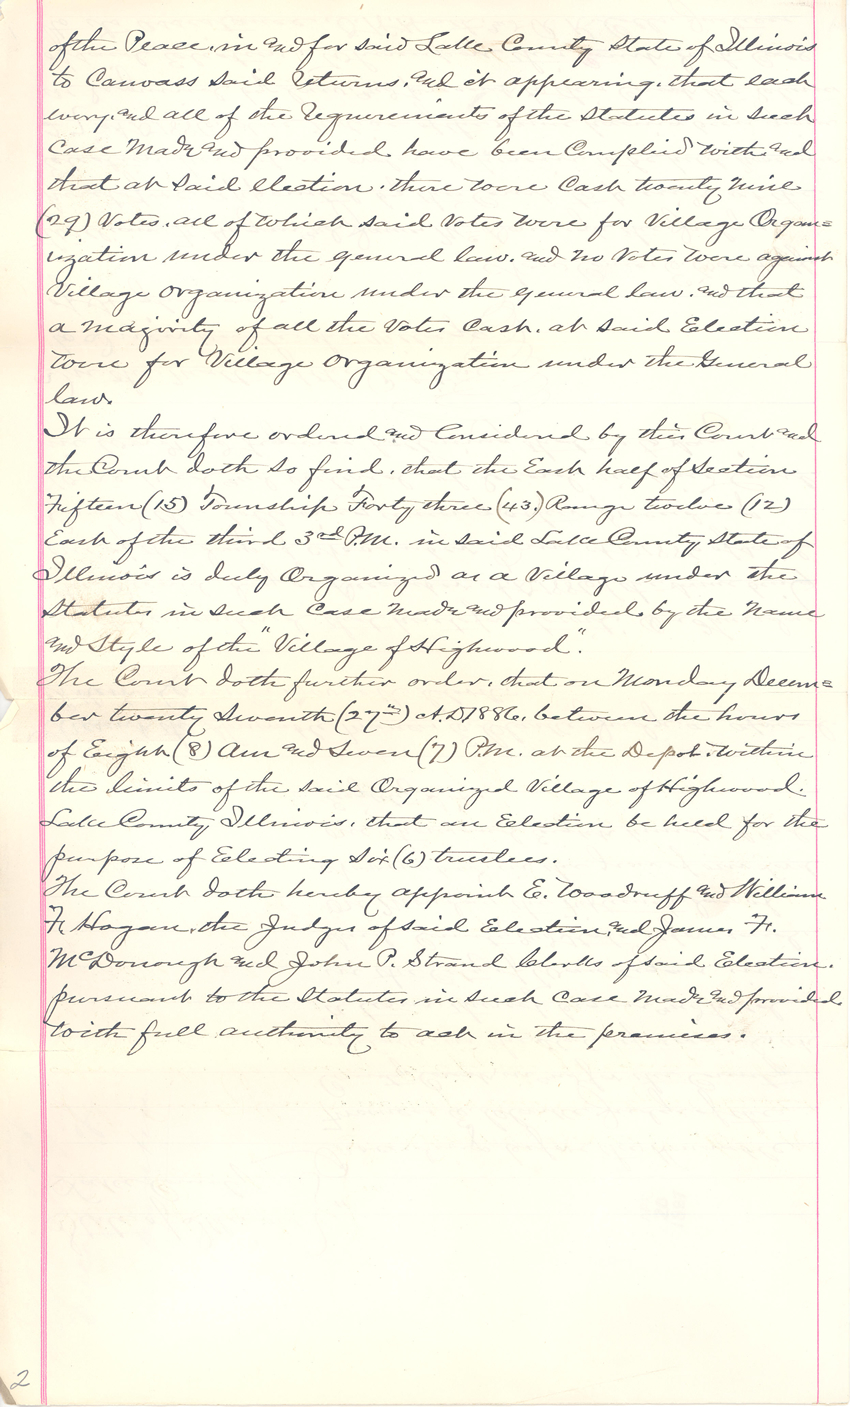 of the Peace, in and for said Lake County State of Illinois
to Canvass said returns, and it appearing, that each
every, and all of the requirements of the Statutes in such
Case Made and provided have been Complied with and
that at said election, there were Cast twenty nine
(29) Votes, all of which said Votes were for Village Organ=
ization under the general law, and no Votes were against
Village Organization under the general law, and that
a majority of all the Votes Cast, at said Election
were for Village Organization under the General
law.
It is therefore ordered and Considered by this Court and
the Court doth so find, that the East half of Section
Fifteen (15) Township Forty three (43.) Range twelve (12)
East of the third 3rd P.M. in said Lake County State of
Illinois is duly Organized as a Village under the
Statutes in such case made and provided by the Name
and Style of the "Village of Highwood".
The Court doth further order, that on Monday Decem=
ber twenty Seventh (27th) A.D. 1886, between the hours
of Eight (8) Am and Seven (7) P.M. at the Depot, within
the limits of the said Organized Village of Highwood.
Lake County Illinois, that an Election be held for the
purpose of Electing Six (6) trustees.
The Court doth hereby appoint E. Woodruff and William
F. Hogan, the Judges of said Election, and James F.
McDonough and John P. Strand Clerks of said Election.
pursuant to the Statutes in such Case made and provided
with full authority to act in the premises.
2